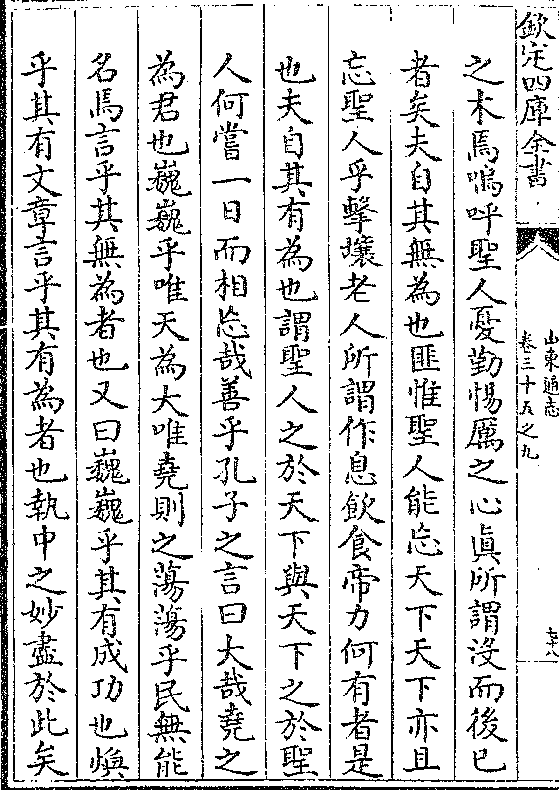 欽定四庫全書
山東通志
卷三十五之九
之木焉嗚呼聖人憂勤惕厲之心真所謂沒而後已
者矣夫自其無為也匪惟聖人能忘天下天下亦且
忘聖人乎擊壤老人所謂作息飲食帝力何有者是
也夫自其有為也謂聖人之於天下與天下之於聖
人何嘗一日而相忘哉善乎孔子之言曰大哉堯之
為君也巍巍乎唯天為大唯堯則之蕩蕩乎民無能
名焉言乎其無為者也又曰巍巍乎其有成功也煥
乎其有文章言乎其有為者也執中之妙盡於此矣